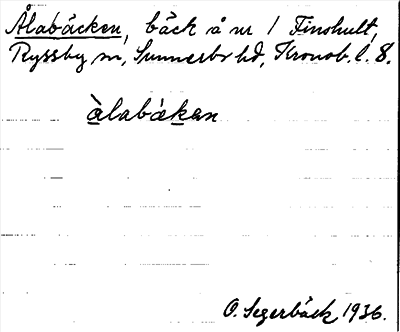 Ålabäcken, bäck å nr 1 Finshult,
Ryssby sn, Sunnerbo hd, Kronob. l. 8.
àlabäkan
O. Segerbäck 1936.